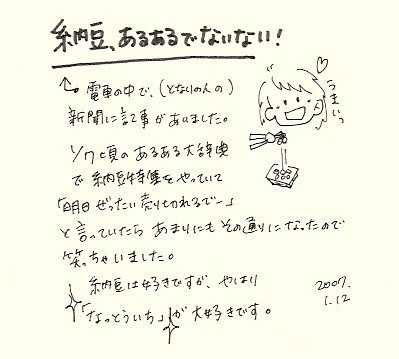 納豆、あるあるでないない!
電車の中で、(となりの人の)
うまいっ
新聞に記事がありました。
1/7頃のあるある大辞典
で納豆特集をやっていて
「明日ぜったい売り切れるでー」
と言っていたらあまりにもその通りになったので
笑っちゃいました。
納豆は好きですが、やはり
「なっとういち」が大好きです。
2007.
1.12